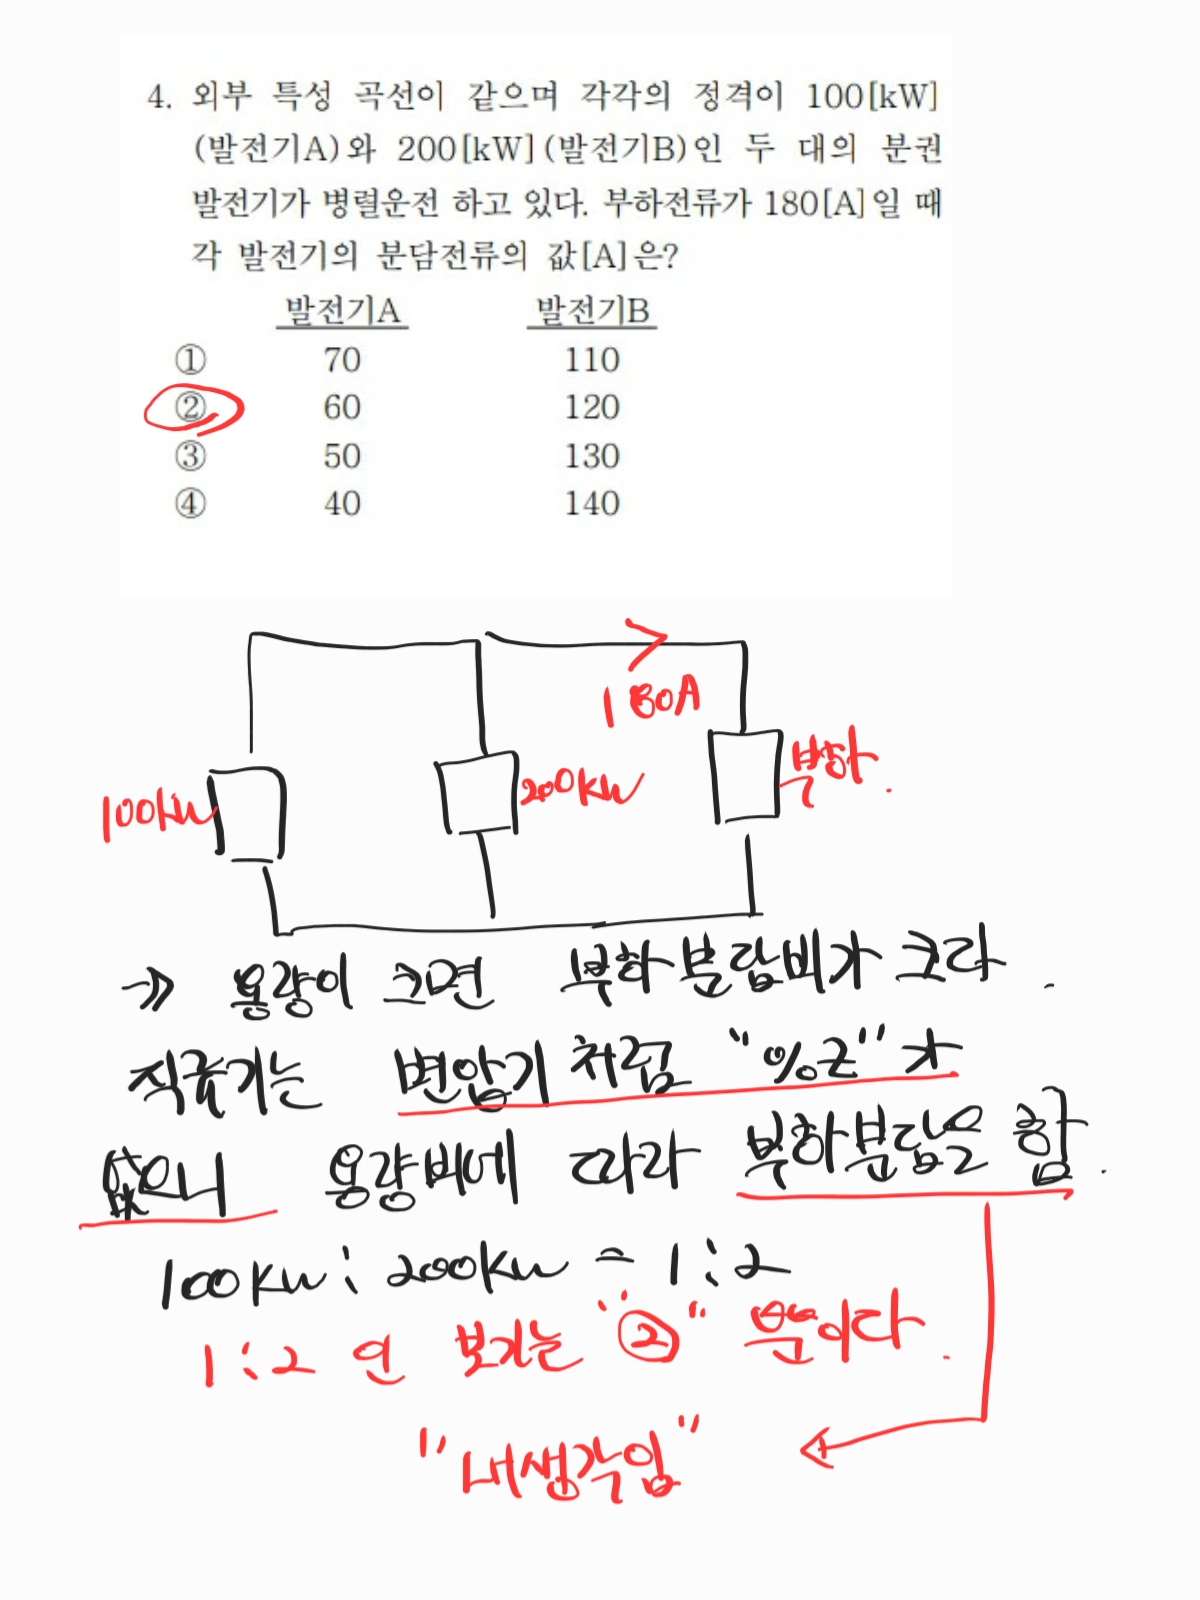 4. 외부 특성 곡선이 같으며 각각의 정격이 100[kW]
(발전기A)와 200[kW](발전기B)인 두 대의 분권
발전기가 병렬운전 하고 있다. 부하전류가 180[A]일 때
각 발전기의 분담전류의 값[A]은?
발전기A 발전기B
① 70 110
② 60 120
③ 50 130
④ 40 140
180A
100kW 200kW 부하.
→> 용량이 크면 부하분담비가 크다.
직류기는 변압기처럼 "%Z"가
없으니 용량비에 따라 부하분담을 함.
100kW : 200kW = 1 : 2
1 : 2 인 보기는 "②" 뿐이다.
"내생각임"